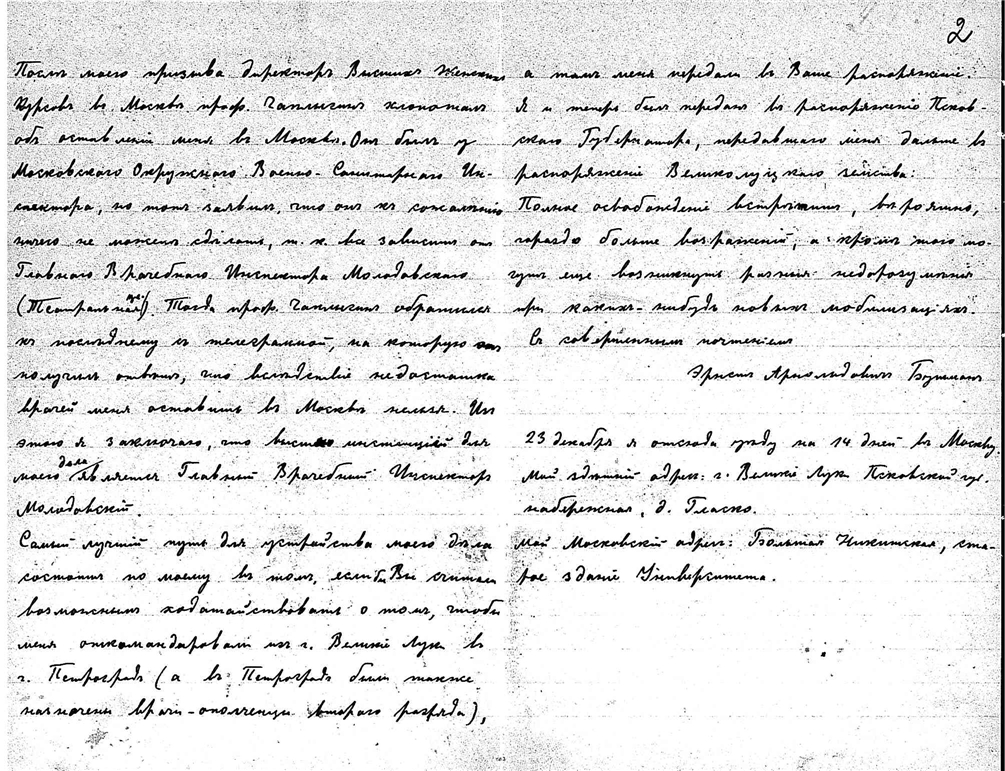 2
Послѣ моего призыва директоръ Высшихъ Женскихъ
Курсовъ въ Москвѣ проф. Чаплыгинъ хлопоталъ
объ оставленіи меня въ Москвѣ. Онъ былъ у
Московскаго Окружнаго Военно-Санитарнаго Ин-
спектора, но тотъ заявилъ, что онъ къ сожалѣнію
ничего не можетъ сдѣлать, т. к. все зависитъ отъ
Главнаго Врачебнаго Инспектора Молодовскаго
(Театральная). Тогда проф. Чаплыгинъ обратился
къ послѣднему съ телеграммой, на которую
получилъ отвѣтъ, что вслѣдствіе недостатка
врачей меня оставить въ Москвѣ нельзя. Изъ
этого я заключаю, что высшей инстанціей для
моего дѣла является Главный Врачебный Инспекторъ
Молодовскій.
Самый лучшій путь для устройства моего дѣла
состоитъ по моему въ томъ, если бы Вы считали
возможнымъ ходатайствовать о томъ, чтобы
меня откомандировали изъ г. Великіе Луки въ
г. Петроградъ (а въ Петроградѣ были также
назначены врачи-ополченцы второго разряда),
а тамъ меня передали въ Ваше распоряженіе.
Я и теперь былъ переданъ въ распоряженіе Псков-
скаго Губернатора, передавшаго меня дальше въ
распоряженіе Великолуцкаго земства.
Полное освобожденіе встрѣтитъ, вѣроятно,
гораздо больше возраженій, а кромѣ того мо-
гутъ еще возникнуть разныя недоразумѣнія
при какихъ-нибудь новыхъ мобилизаціяхъ.
Съ совершеннымъ почтеніемъ
Эрнстъ Арнольдовичъ
23 декабря я отсюда уѣду на 14 дней въ Москву.
Мой здѣшній адресъ: г. Великіе Луки Псковской губ.
набережная, д. Гласко.
Мой Московскій адресъ: Большая Никитская, ста-
рое зданіе Университета.